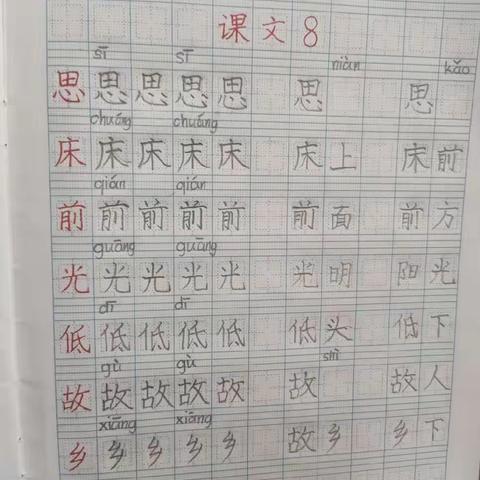 课文8
sī sī niàn kǎo
思 思 思 思 思 思 思
chuáng chuáng
床 床 床 床 床 床上 床前
qián qián
前 前 前 前 前 前面 前方
guāng guāng
光 光 光 光 光 光明 阳光
dī dī
低 低 低 低 低 低头 低下
gù gù shì
故 故 故 故 故 故 故人
xiāng xiāng
乡 乡 乡 乡 乡 故乡 乡下